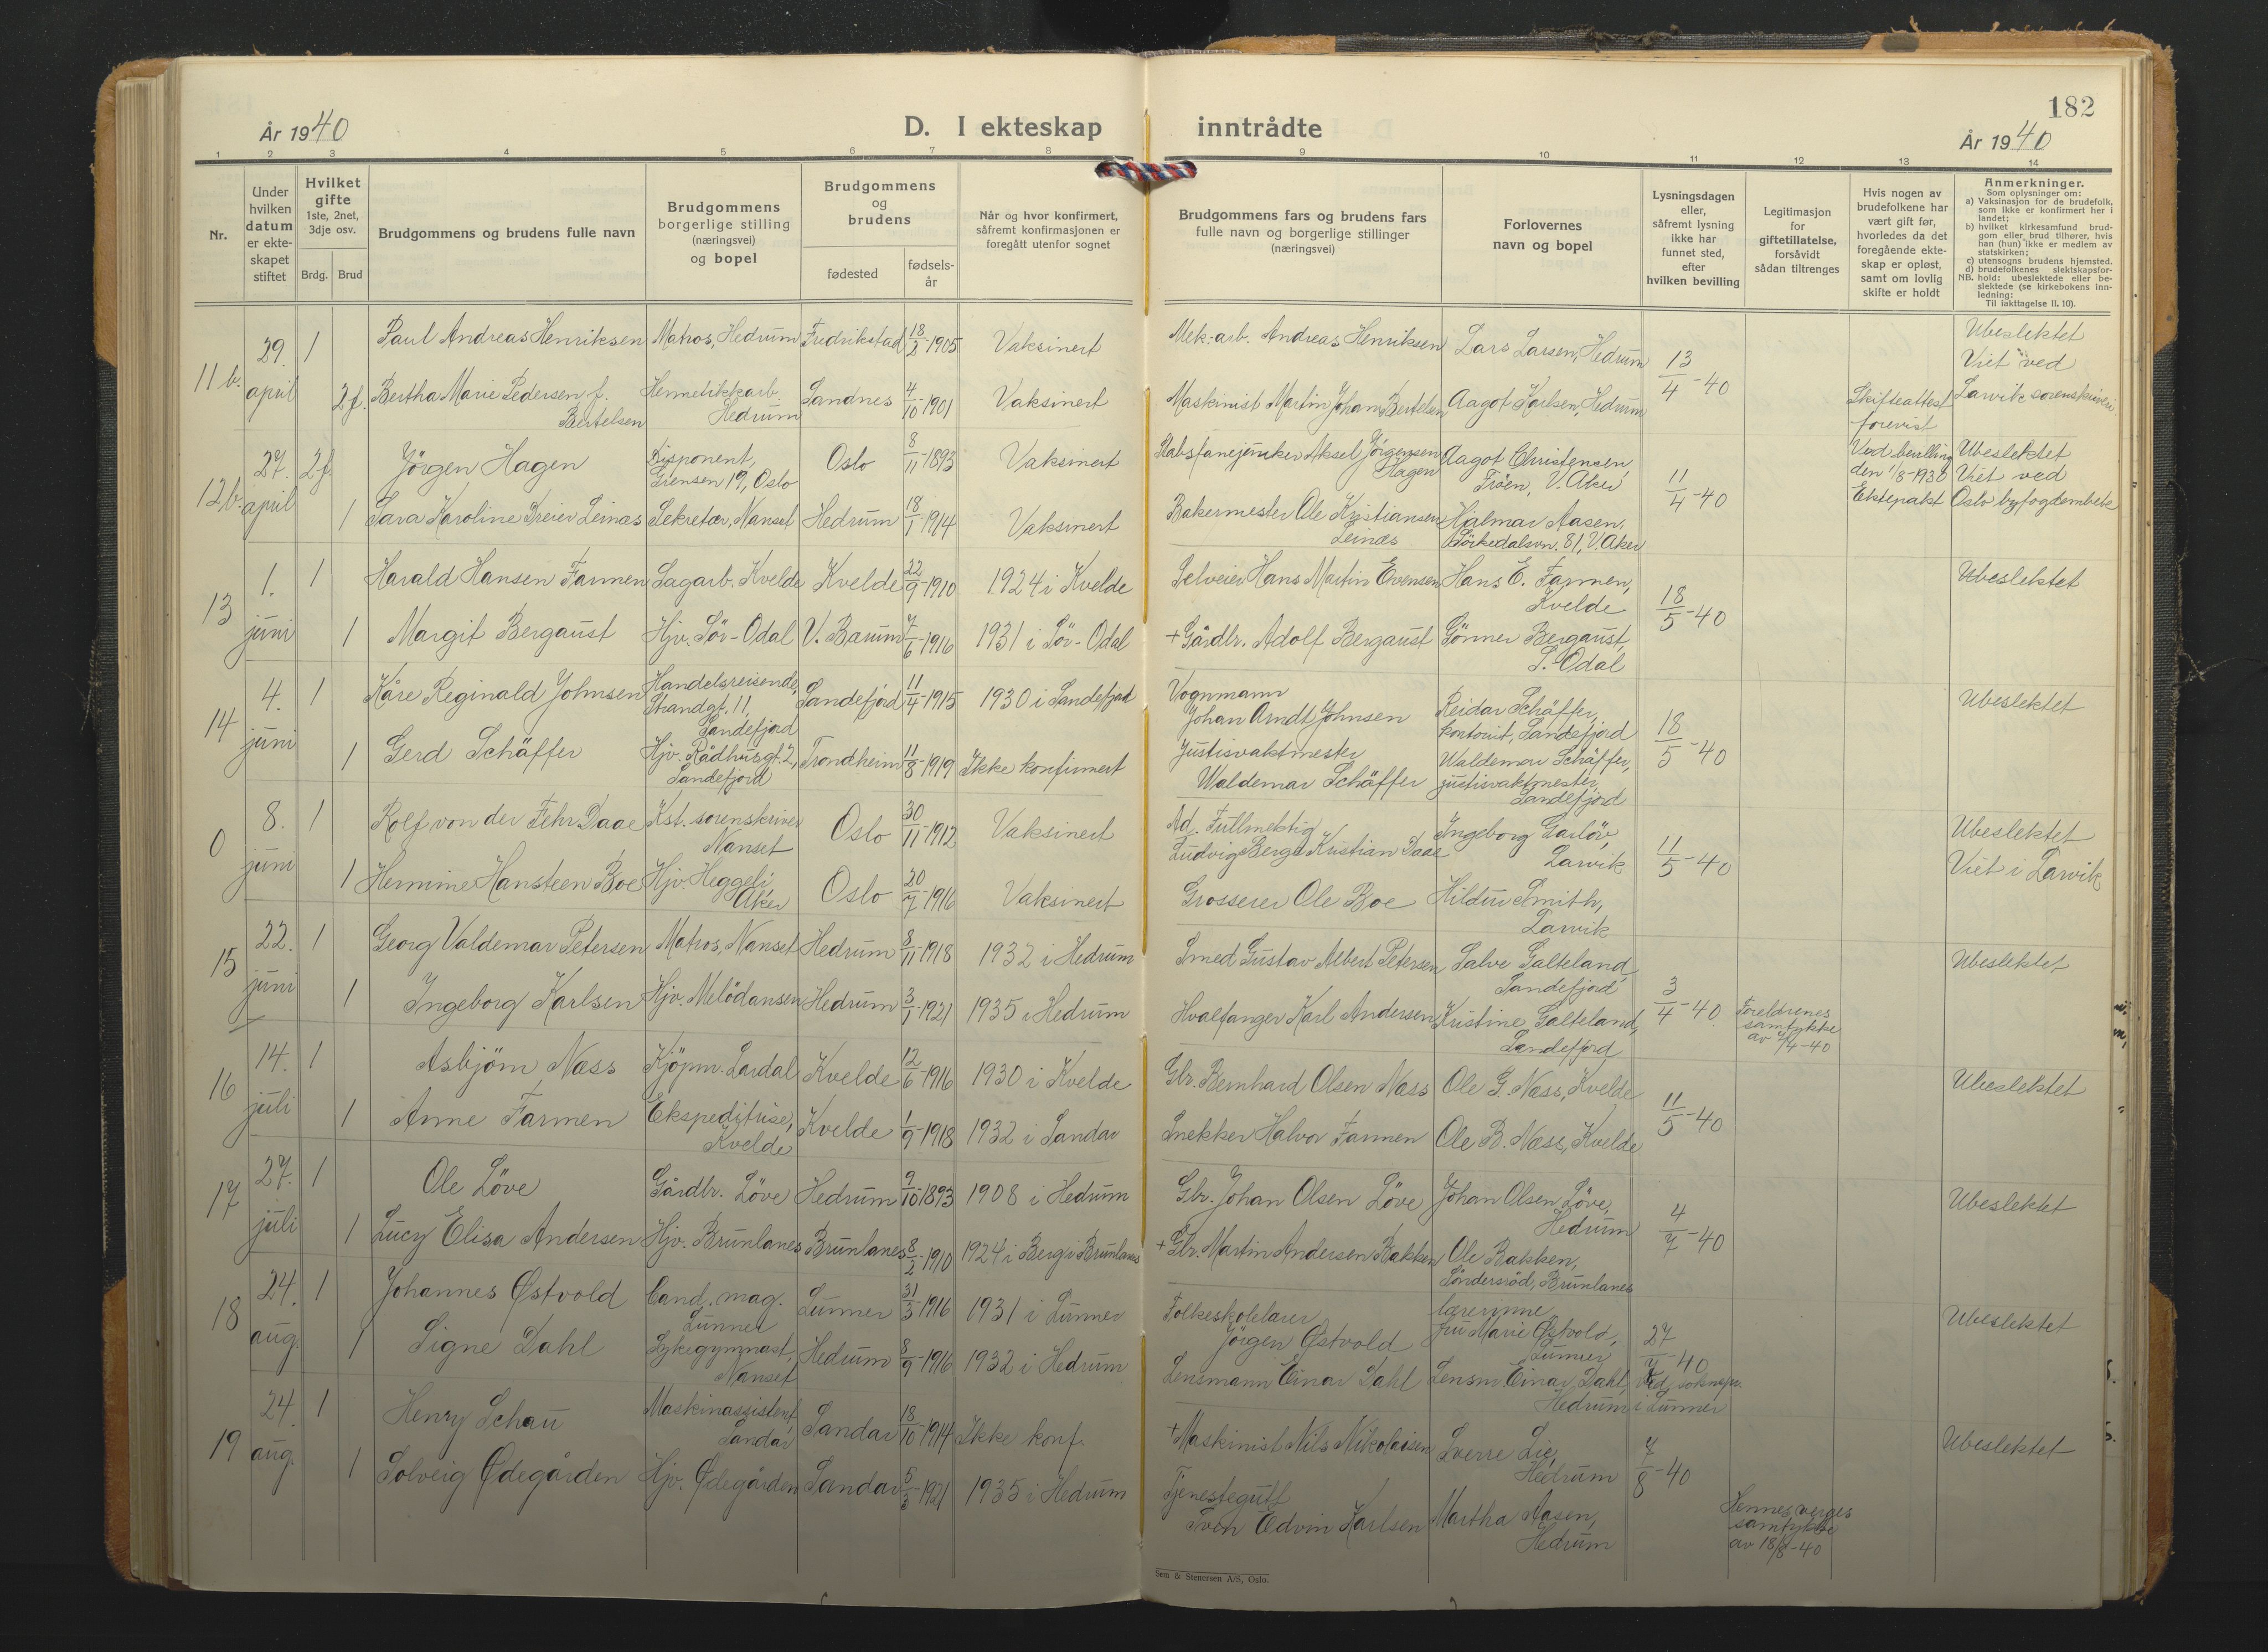 182
År 1940
D. I ekteskap inntrådte
År 1940
1 2 3 4 5 6 7 8 9 10 11 12 13 14
Nr.
Under hvilken datum er ekte-skapet stiftet
Hvilket gifte
1ste, 2net, 3dje osv.
Brdg. Brud
Brudgommens og brudens fulle navn
Brudgommens borgerlige stilling (næringsvei) og bopel
Brudgommens og brudens
fødested
fødsels-år
Når og hvor konfirmert, såfremt konfirmasjonen er foregått utenfor sognet
Brudgommens fars og brudens fars fulle navn og borgerlige stillinger (næringsvei)
Forlovernes navn og bopel
Lysningsdagen eller, såfremt lysning ikke har funnet sted, efter hvilken bevilling
Legitimasjon for giftetillatelse, forsåvidt sådan tiltrenges
Hvis nogen av brudefolkene har vært gift før, hvorledes da det foregående ekte-skap er opløst, samt om lovlig skifte er holdt
Anmerkninger.
Som oplysninger om:
a) Vaksinasjon for de brudefolk, som ikke er konfirmert her i landet;
b) hvilket kirkesamfund brud-gom eller brud tilhører, hvis han (hun) ikke er medlem av statskirken;
c) utensogns brudens hjemsted.
d) brudefolkenes slektskapsfor-hold: ubeslektede eller be-slektede (se kirkebokens inn-ledning:
NB. Til iakttagelse II. 10).
11 b. 29. april 1 Paul Andreas Henriksen Matros, Hedrum Fredrikstad 18/2-1905 Vaksinert Mek.arb. Andreas Henriksen Lars Larsen, Hedrum 13/4-40 Ubeslektet Viet ved Larvik sorenskriveri.
2 f. Bertha Marie Pedersen f. Bertelsen Hermetikkarb. Hedrum Sandnes 4/10-1901 Vaksinert Maskinist Martin Johan Bertelsen Aagot Karlsen, Hedrum Skifteattest forevist
12 b. 27. april 2 f. Jörgen Hagen Disponent, Grensen 19, Oslo Oslo 8/11-1893 Vaksinert Stabsfanejunker Aksel Jörgensen Hagen Aagot Christensen, Fröen, V. Aker 11/4-40 Ved bevilling den 1/8-1930 Ektepakt Ubeslektet Viet ved Oslo byfogdembete
1 Sara Karoline Dreier Leinæs Sekretær, Nanset Hedrum 18/1-1914 Vaksinert Bakermester Ole Kristiansen Leinæs Hjalmar Aasen, Sörkedalsvn. 81, V. Aker
13 1. juni 1 Harald Hansen Farmen Sagarb. Kvelde Kvelde 22/9-1910 1924 i Kvelde Selveier Hans Martin Evensen Hans E. Farmen, Kvelde 18/5-40 Ubeslektet
1 Margit Bergaust Hjv. Sör-Odal V. Bærum 7/6-1916 1931 i Sör-Odal + Gårdbr. Adolf Bergaust Gönner Bergaust, S.-Odal
14 4. juni 1 Kåre Reginald Johnsen Handelsreisende, Strandgt. 11, Sandefjord Sandefjord 11/4-1915 1930 i Sandefjord Vognmann Johan Arndt Johnsen Reidar Schäffer, kontorist, Sandefjord 18/5-40 Ubeslektet
1 Gerd Schäffer Hjv. Rådhusgt. 2, Sandefjord Trondheim 11/8-1919 Ikke konfirmert Justisvaktmester Waldemar Schäffer Waldemar Schäffer, justisvaktmester, Sandefjord
0 8. juni 1 Rolf von der Fehr Daae Kst. sorenskriver Nanset Oslo 30/11-1912 Vaksinert Ad. Fullmektig Ludvig Berge Kristian Daae Ingeborg Garlöv, Larvik 11/5-40 Ubeslektet Viet i Larvik
1 Hermine Hansteen Boe Hjv. Heggeli, Aker Oslo 20/7-1916 Vaksinert Grosserer Ole Boe Hildur Smith, Larvik
15 22. juni 1 Georg Valdemar Petersen Matros, Nanset Hedrum 8/11-1918 1932 i Hedrum Smed Gustav Albert Petersen Salve Galteland, Sandefjord 3/4-40 Ubeslektet
1 Ingeborg Karlsen Hjv. Melödansen Hedrum 3/1-1921 1935 i Hedrum Hvalfanger Karl Andersen Kristine Galteland, Sandefjord Foreldrenes samtykke av 4/4-40
16 14. juli 1 Asbjörn Næss Kjöpm. Lardal Kvelde 12/6-1916 1930 i Kvelde Gbr. Bernhard Olsen Næss Ole G. Næss, Kvelde 11/5-40 Ubeslektet
1 Anne Farmen Ekspeditrise, Kvelde Kvelde 1/9-1918 1932 i Sandar Snekker Halvor Farmen Ole B. Næss, Kvelde
17 27. juli 1 Ole Löve Gårdbr. Löve Hedrum 9/10-1893 1908 i Hedrum Gbr. Johan Olsen Löve Johan Olsen Löve, Hedrum 4/7-40 Ubeslektet
1 Lucy Elisa Andersen Hjv. Brunlanes Brunlanes 8/2-1910 1924 i Berg i Brunlanes + Gbr. Martin Andersen Bakken Ole Bakken, Söndersröd, Brunlanes
18 24. aug. 1 Johannes Østvold Cand. mag. Lunner Lunner 31/3-1916 1931 i Lunner Folkeskolelærer Jörgen Østvold lærerinne fru Marie Østvold, Lunner 27/7-40 Ved sokneprs. i Lunner Ubeslektet
1 Signe Dahl Sykegymnast, Nanset Hedrum 8/9-1916 1932 i Hedrum Lensmann Einar Dahl Lensm. Einar Dahl, Hedrum
19 24. aug. 1 Henry Schau Maskinassistent, Sandar Sandar 18/10-1914 Ikke konf. + Maskinist Nils Nikolaisen Sverre Lie, Hedrum 7/8-40 Ubeslektet
1 Solveig Ødegården Hjv. Ødegården Sandar 5/3-1921 1935 i Hedrum Tjenestegutt Sven Edvin Karlsen Martha Aasen, Hedrum Hennes verges samtykke av 18/8-40
Sem & Stenersen A/S, Oslo.